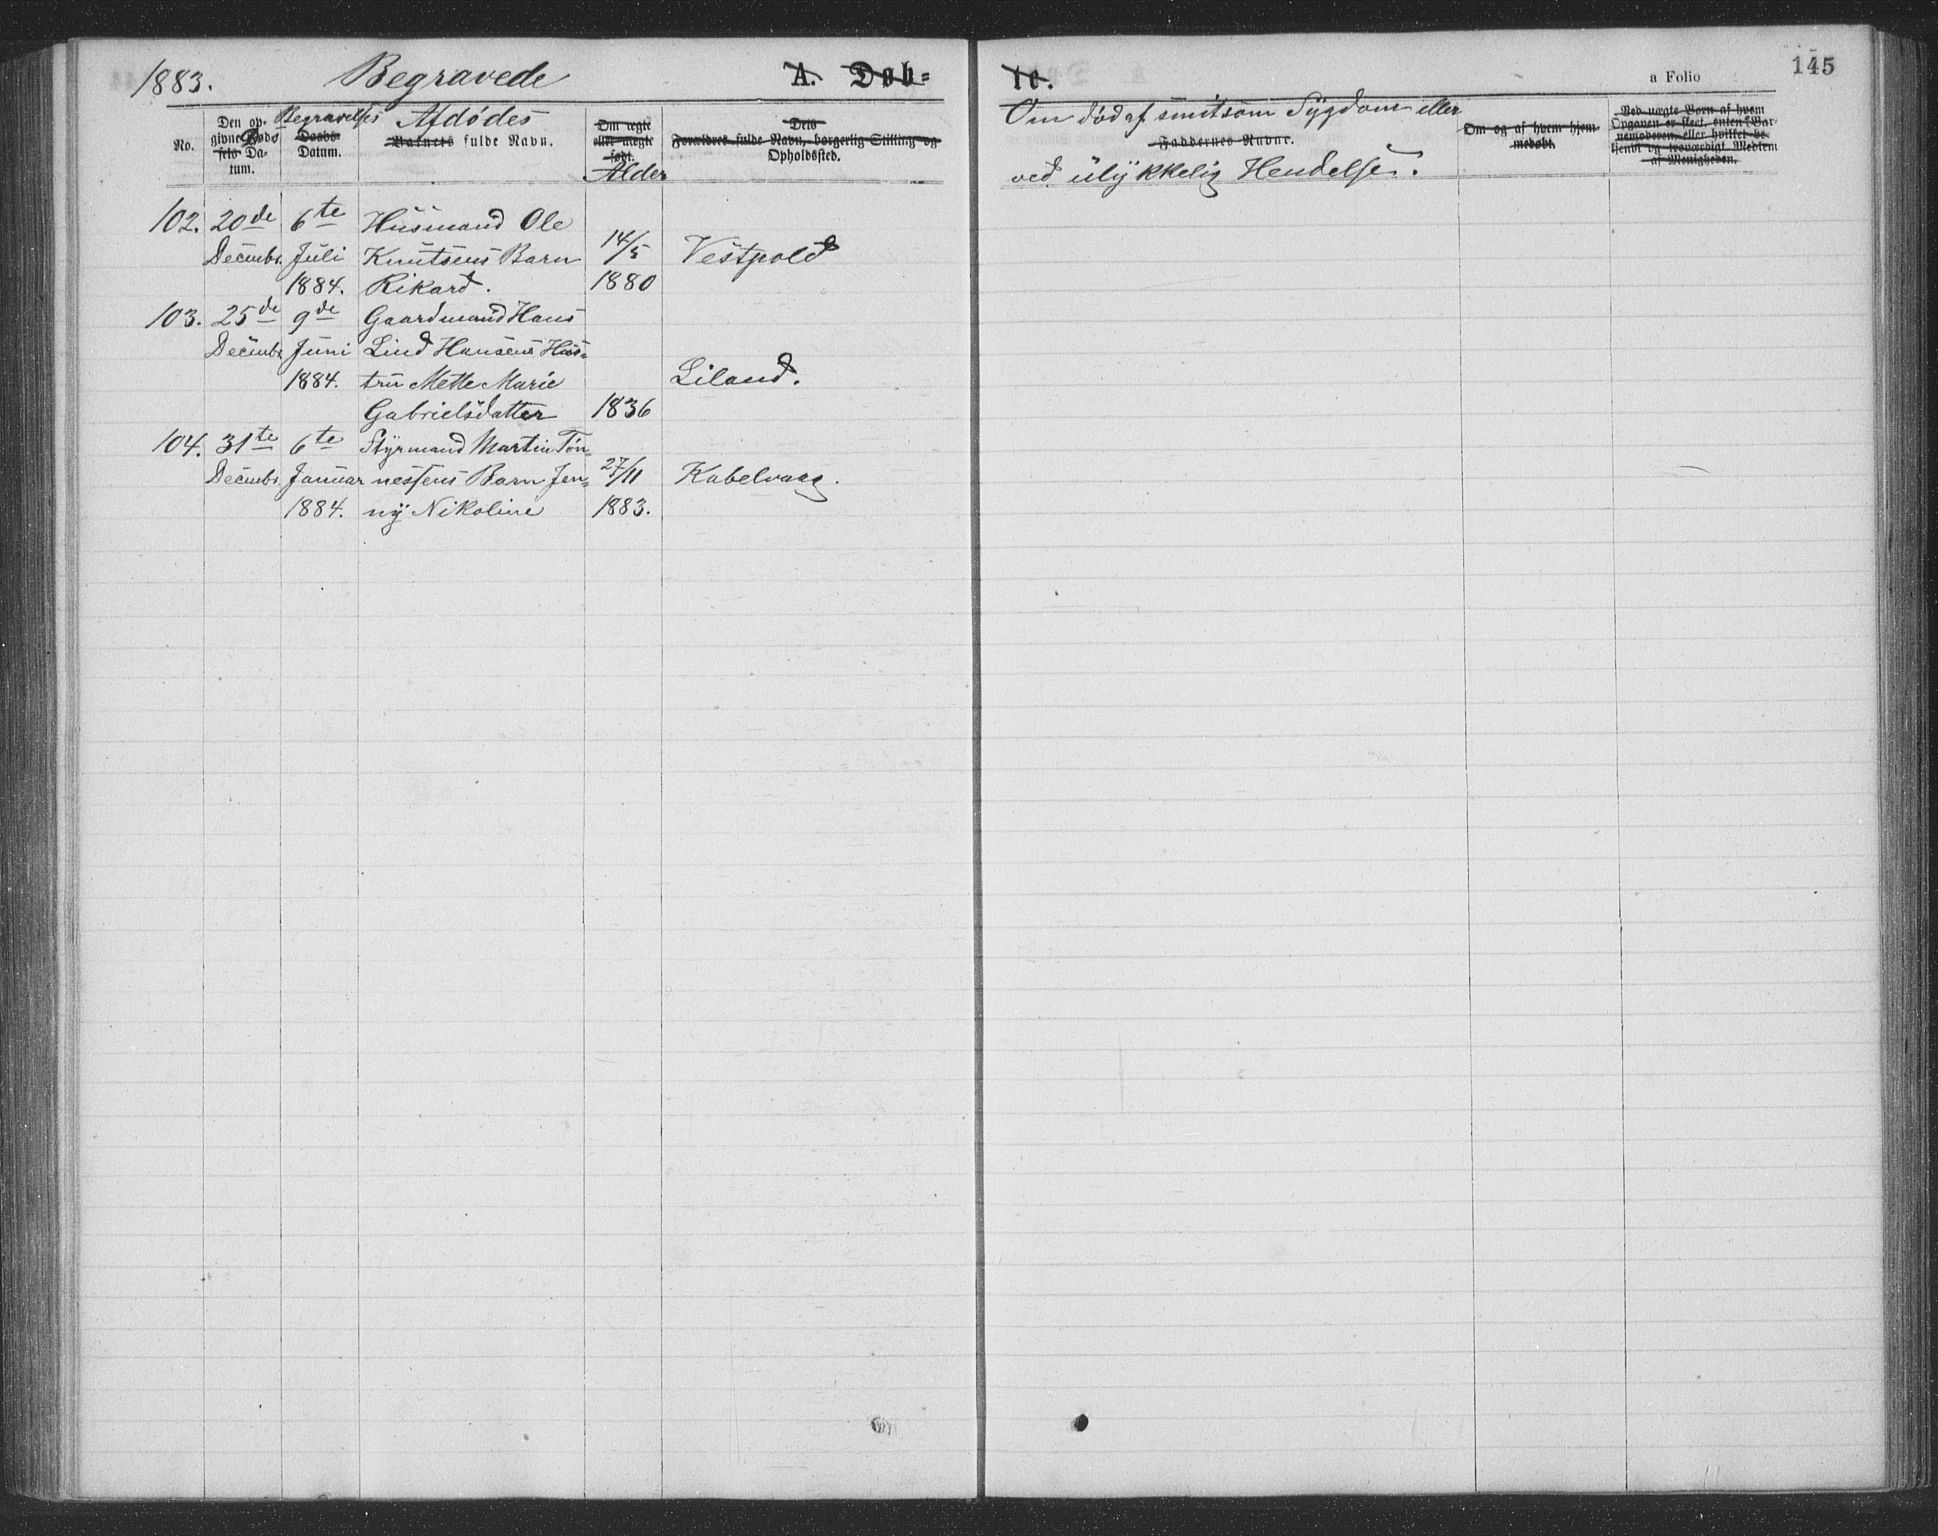 1883. Begravede A. Døb= te. a Folio 145
No.
Den op-
givne Døds
fels Da-
tum.
Begravelses
Daabs-
Datum.
Afdødes
Barnets fulde Navn.
Om ægte
eller uægte
født.
Alder
Dets
Forældres fulde Navn, borgerlig Stilling og
Opholdssted.
Om død af smitsom Sygdom eller
Faddernes Navne.
ved ulykkelig Hendelse.
Om og af hvem hjem-
medøbt.
Ved uægte Børn af hvem
Opgaven er skeet, enten Bar-
nemoderen, eller hvilket be-
kjendt og troværdigt Medlem
af Menigheden.
102. 20de 6te Husmand Ole
Decmbr. Juli Knutsens Barn 14/5 Vestpold
1884. Rikard. 1880
103. 25de 9de Gaardmand Hans
Decmbr. Juni Lind Hansens Hus=
1884. tru Mette Marie Liland.
Gabrielsdatter 1836
104. 31te 6te Styrmand Martin Tøn=
Decmbr. Januar nessens Barn Jen= 27/11 Kabelvaag.
1884. ny Nikoline 1883.